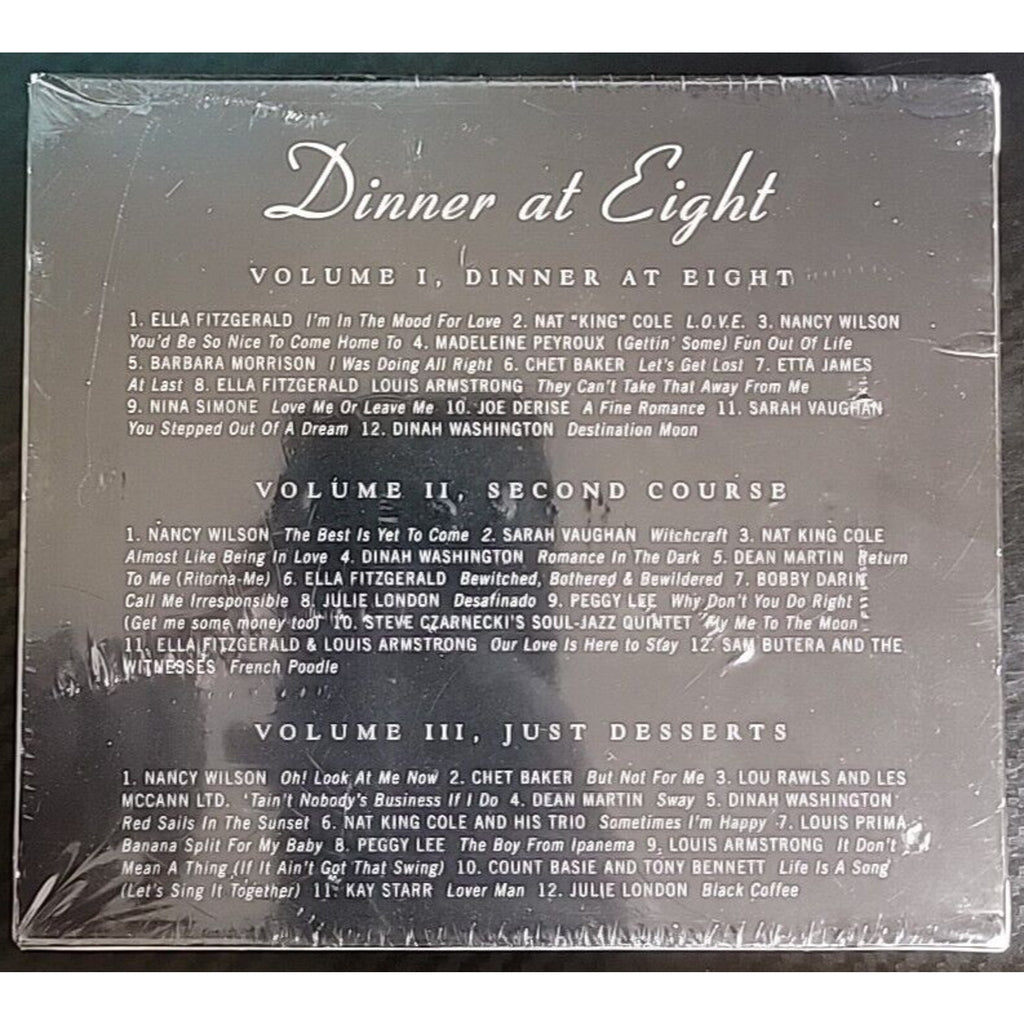 Dinner at Eight
VOLUME I, DINNER AT EIGHT
1. ELLA FITZGERALD I'm In The Mood For Love 2. NAT "KING" COLE L.O.V.E. 3. NANCY WILSON
You'd Be So Nice To Come Home To 4. MADELEINE PEYROUX (Gettin' Some) Fun Out Of Life
5. BARBARA MORRISON I Was Doing All Right 6. CHET BAKER Let's Get Lost 7. ETTA JAMES
At Last 8. ELLA FITZGERALD LOUIS ARMSTRONG They Can't Take That Away From Me
9. NINA SIMONE Love Me Or Leave Me 10. JOE DERISE A Fine Romance 11. SARAH VAUGHAN
You Stepped Out Of A Dream 12. DINAH WASHINGTON Destination Moon
VOLUME II, SECOND COURSE
1. NANCY WILSON The Best Is Yet To Come 2. SARAH VAUGHAN Witchcraft 3. NAT KING COLE
Almost Like Being In Love 4. DINAH WASHINGTON Romance In The Dark 5. DEAN MARTIN Return
To Me (Ritorna-Me) 6. ELLA FITZGERALD Bewitched, Bothered & Bewildered 7. BOBBY DARIN
Call Me Irresponsible 8. JULIE LONDON Desafinado 9. PEGGY LEE Why Don't You Do Right
(Get me some money too) 10. STEVE CZARNECKI'S SOUL-JAZZ QUINTET Fly Me To The Moon
11. ELLA FITZGERALD & LOUIS ARMSTRONG Our Love Is Here to Stay 12. SAM BUTERA AND THE
WITNESSES French Poodle
VOLUME III, JUST DESSERTS
1. NANCY WILSON Oh! Look At Me Now 2. CHET BAKER But Not For Me 3. LOU RAWLS AND LES
MCCANN LTD. 'Tain't Nobody's Business If I Do 4. DEAN MARTIN Sway 5. DINAH WASHINGTON
Red Sails In The Sunset 6. NAT KING COLE AND HIS TRIO Sometimes I'm Happy 7. LOUIS PRIMA
Banana Split For My Baby 8. PEGGY LEE The Boy From Ipanema 9. LOUIS ARMSTRONG It Don't
Mean A Thing (If It Ain't Got That Swing) 10. COUNT BASIE AND TONY BENNETT Life Is A Song
(Let's Sing It Together) 11. KAY STARR Lover Man 12. JULIE LONDON Black Coffee